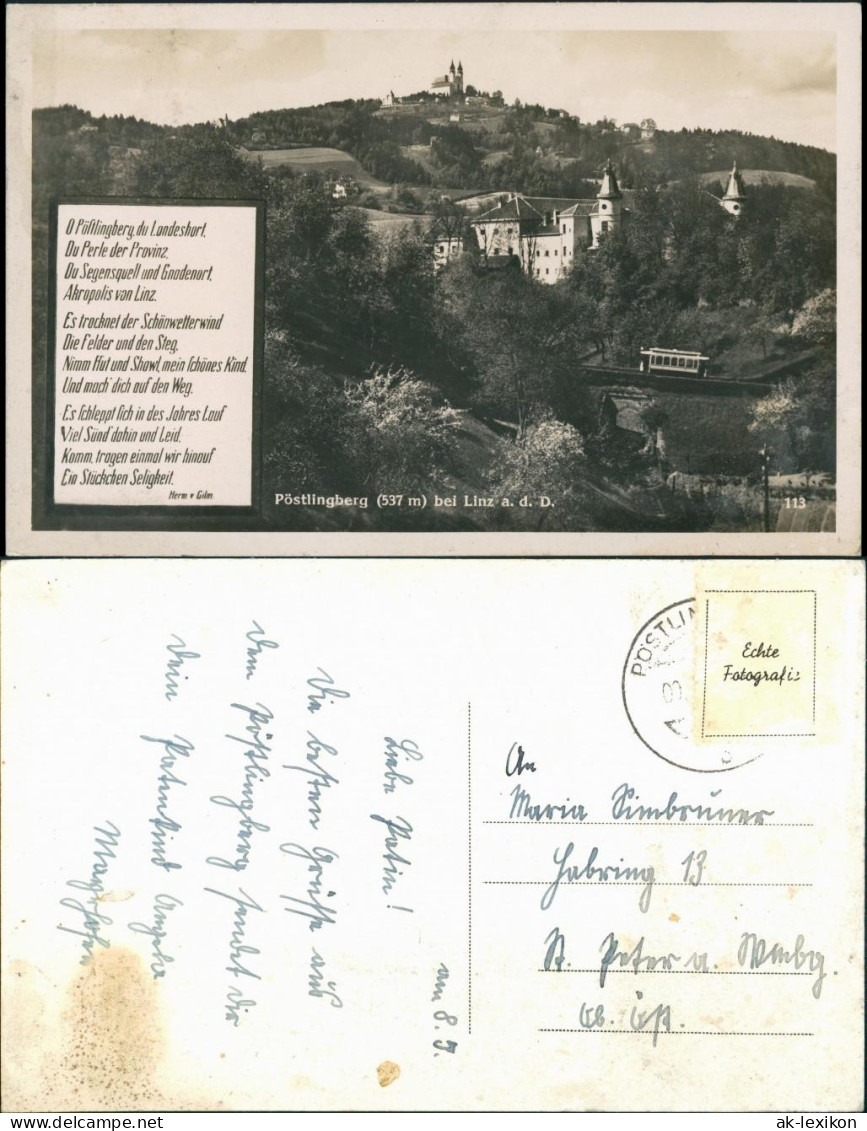 O Pöstlingberg, du Landeshort,
Du Perle der Provinz,
Du Segensquell und Gnadenort,
Akropolis von Linz.
Es trocknet der Schönwetterwind
Die Felder und den Steg.
Nimm Hut und Shawl, mein schönes Kind,
Und mach' dich auf den Weg.
Es schleppt sich in des Jahres Lauf
Viel Sünd' dahin und Leid.
Komm, tragen einmal wir hinauf
Ein Stückchen Seligkeit.
Herm. v Gilm
Pöstlingberg (537 m) bei Linz a. d. D.
113
am 8. 5.
Liebe Patin!
Die besten Grüsse aus
dem Pöstlingberg sendet dir
Dein Patenkind Angela
Mayrhofer
PÖSTLIN
8
Echte
Fotografie
An
Maria Simbrunner
Habring 13
St. Peter a. Wmbg.
Ob. Öst.
www.delcampe.net
ak-lexikon